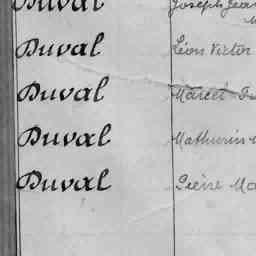 Duval Joseph Jean
Duval Léon Victor
Duval Marcel
Duval Mathurin
Duval Pierre